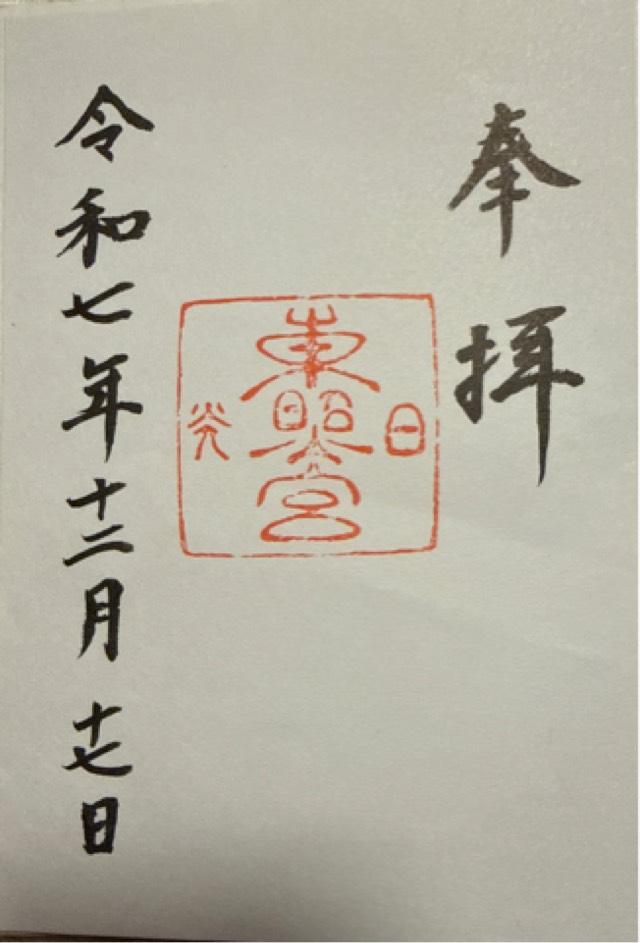 奉拝
日光
東照宮
令和七年十二月十七日